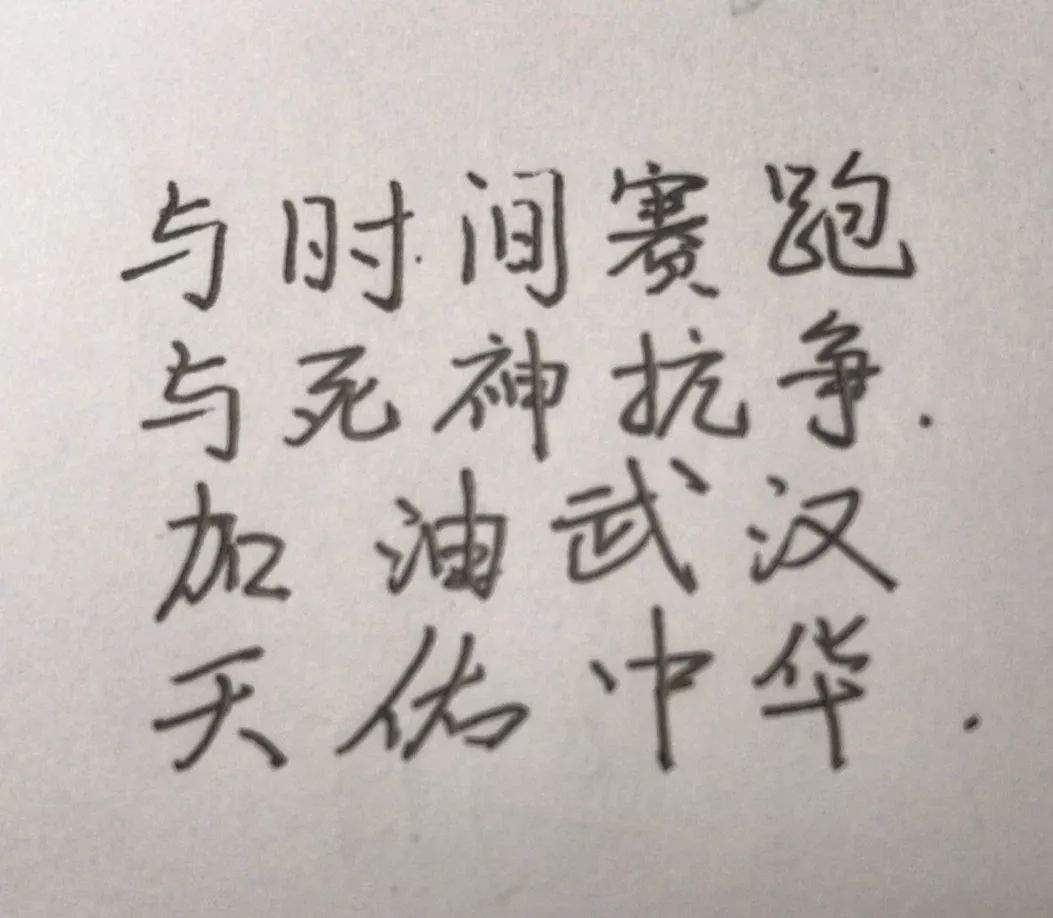 与时间赛跑
与死神抗争.
加油武汉
天佑中华.